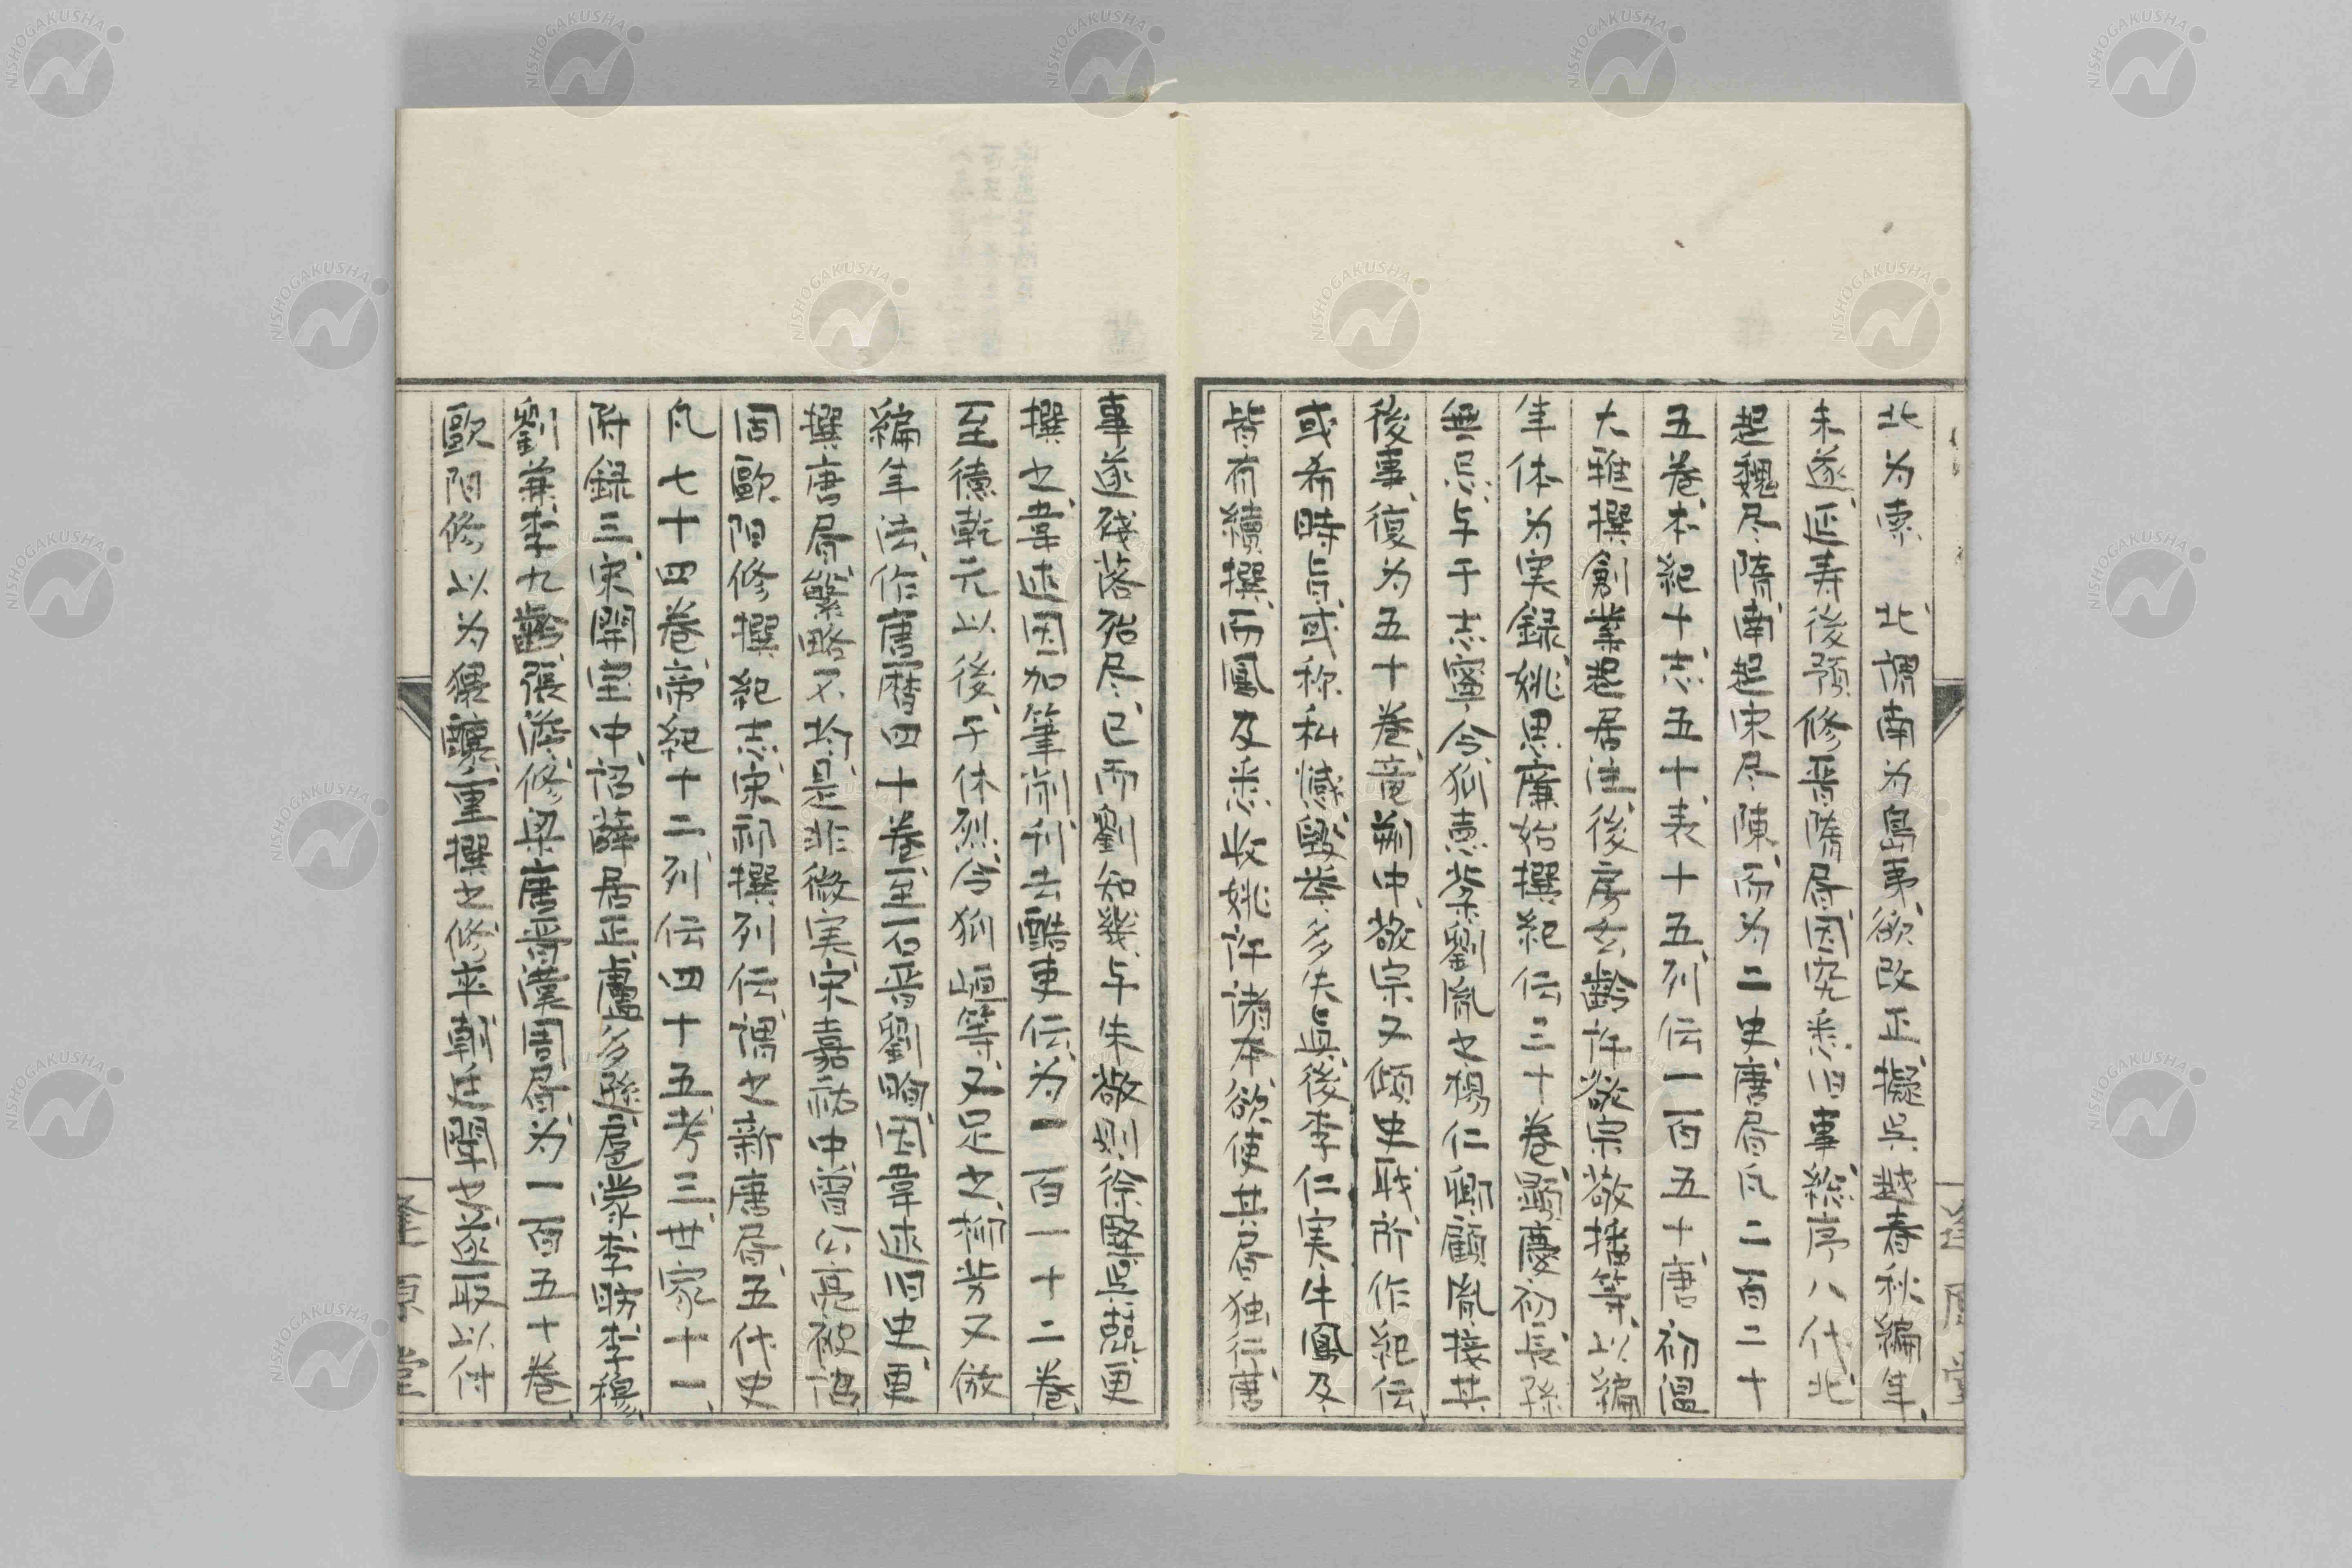 北为索 北謂南为島夷、欲改正、擬吳越春秋編年、
未遂、延寿後預修晋隋書、因究悉旧事、総序八代、北
起魏尽隋、南起宋尽陳、而为二史、唐書凡二百二十
五巻、本紀十、志五十、表十五、列伝一百五十、唐初溫
大雅撰創業起居注、後房玄齡許敬宗敬播等、以編
年体为実録、姚思廉始撰紀伝三十巻、顕慶初長孫
無忌、与于志寧、令狐徳棻、劉胤之、楊仁卿、顧胤、接其
後事、復为五十巻、竜朔中、敬宗又傾史職、所作紀伝
或希時旨、或称私憾、毀誉多失真、後李仁実、牛鳳及
皆有續撰、而鳳及悉收姚許諸本、欲使其書独行、唐
事遂残落殆尽、已而劉知幾、与朱敬則徐堅吳兢更
撰之、韋述因加筆削、刊去酷吏伝、为一百一十二巻、
至徳乾元以後、于休烈、令狐峘等、又足之、柳芳又倣
編年法、作唐暦四十巻、至石晋劉昫、因韋述旧史、更
撰唐書、繁略不均、是非微実、宋嘉祐中曾公亮被詔
周歐陽修撰紀志、宋祁撰列伝、謂之新唐書、五代史
凡七十四巻、帝紀十二、列伝四十五、考三、世家十一、
附録三、宋開宝中、詔薛居正、盧多遜、扈蒙、李昉、李穆、
劉兼、李九齡、張澹、修梁唐晋漢周書、为一百五十巻
歐陽修以为猥釀、重撰之、修卒、朝廷聞之、遂取以付